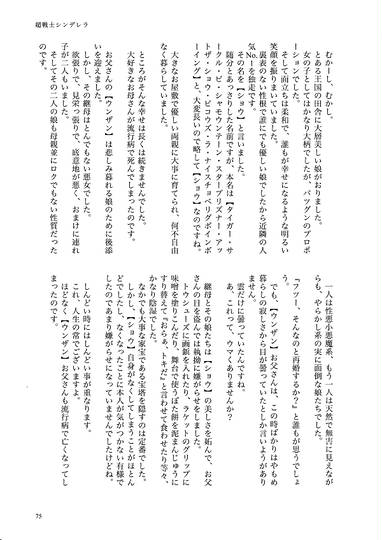 超戦士シンデレラ
むかーし、むかし。
とある王国の田舎に大層美しい娘がおりました。
女の子としてはかなり大柄でしたが、バツグンのプロポ
ーションでした。
そして面立ちは柔和で、誰もが幸せになるような明るい
笑顔を振りまいていました。
裏表のない性根で誰にでも優しい娘でしたから近隣の人
気No.1を独走です。
その名を【ショウ】と言いました。
随分とあっさりした名前ですが、本名は【タイガー・サ
ークル・ビ・シャモウンテーン・スタープリズナー・アッ
トザ・ショウ・ビコウズ・ラ・ナイスチョベリグボインボ
イング】と、大変長いので略して【ショウ】なのですね。
大きなお屋敷で優しい両親に大事に育てられ、何不自由
なく暮らしていました。
ところがそんな幸せは長くは続きませんでした。
大好きなお母さんが流行病で死んでしまったのです。
お父さん【ウンザン】は悲しみ暮れる娘のために後添
いを迎えました。
だけど、その継母はとんでもない悪女でした。
欲張りで、見栄っ張りで、底意地が悪く、おまけに連れ
子が二人もいました。
そしてその二人の娘も母親並にロクでもない性質だった
のです。
一人は性悪小悪魔系、もう一人は天然で無害に見えなが
らも、やらかし系の実に面倒な娘たちでした。
「フツー、そんなのと再婚するか?」と誰もが思うでしょ
う。
でも、【ウンザン】お父さんは、この時ばかりはやもめ
暮らしの寂しさから目が曇っていたとしか言いようがあり
ません。
雲だけに曇っていたんですね。
あ、これって、ウマくありませんか?
継母とその娘たちは【ショウ】の美しさを妬んで、お父
さんの目を盗んでは執拗に嫌がらせをしました。
トウシューズに画鋲を入れたり、ラケットのグリップに
味噌を塗りこんだり、舞台で使うぼた餅を泥まんじゅうに
すり替えて「おらぁ、トキだ」と言わせて食わせたり等々、
かなり陰湿でした。
なかでも大事な家宝である宝塔を隠すのは定番でした。
しかし、【ショウ】自身がなくしてしまうことがほとん
どでしたし、なくなったことに本人が気がつかない有様で
したのであまり嫌がらせになっていませんでしたけどね。
しんどい時にはしんどい事が重なります。
これ、人生の常でございますよ。
ほどなく【ウンザン】お父さんも流行病で亡くなってし
まったのです。
75